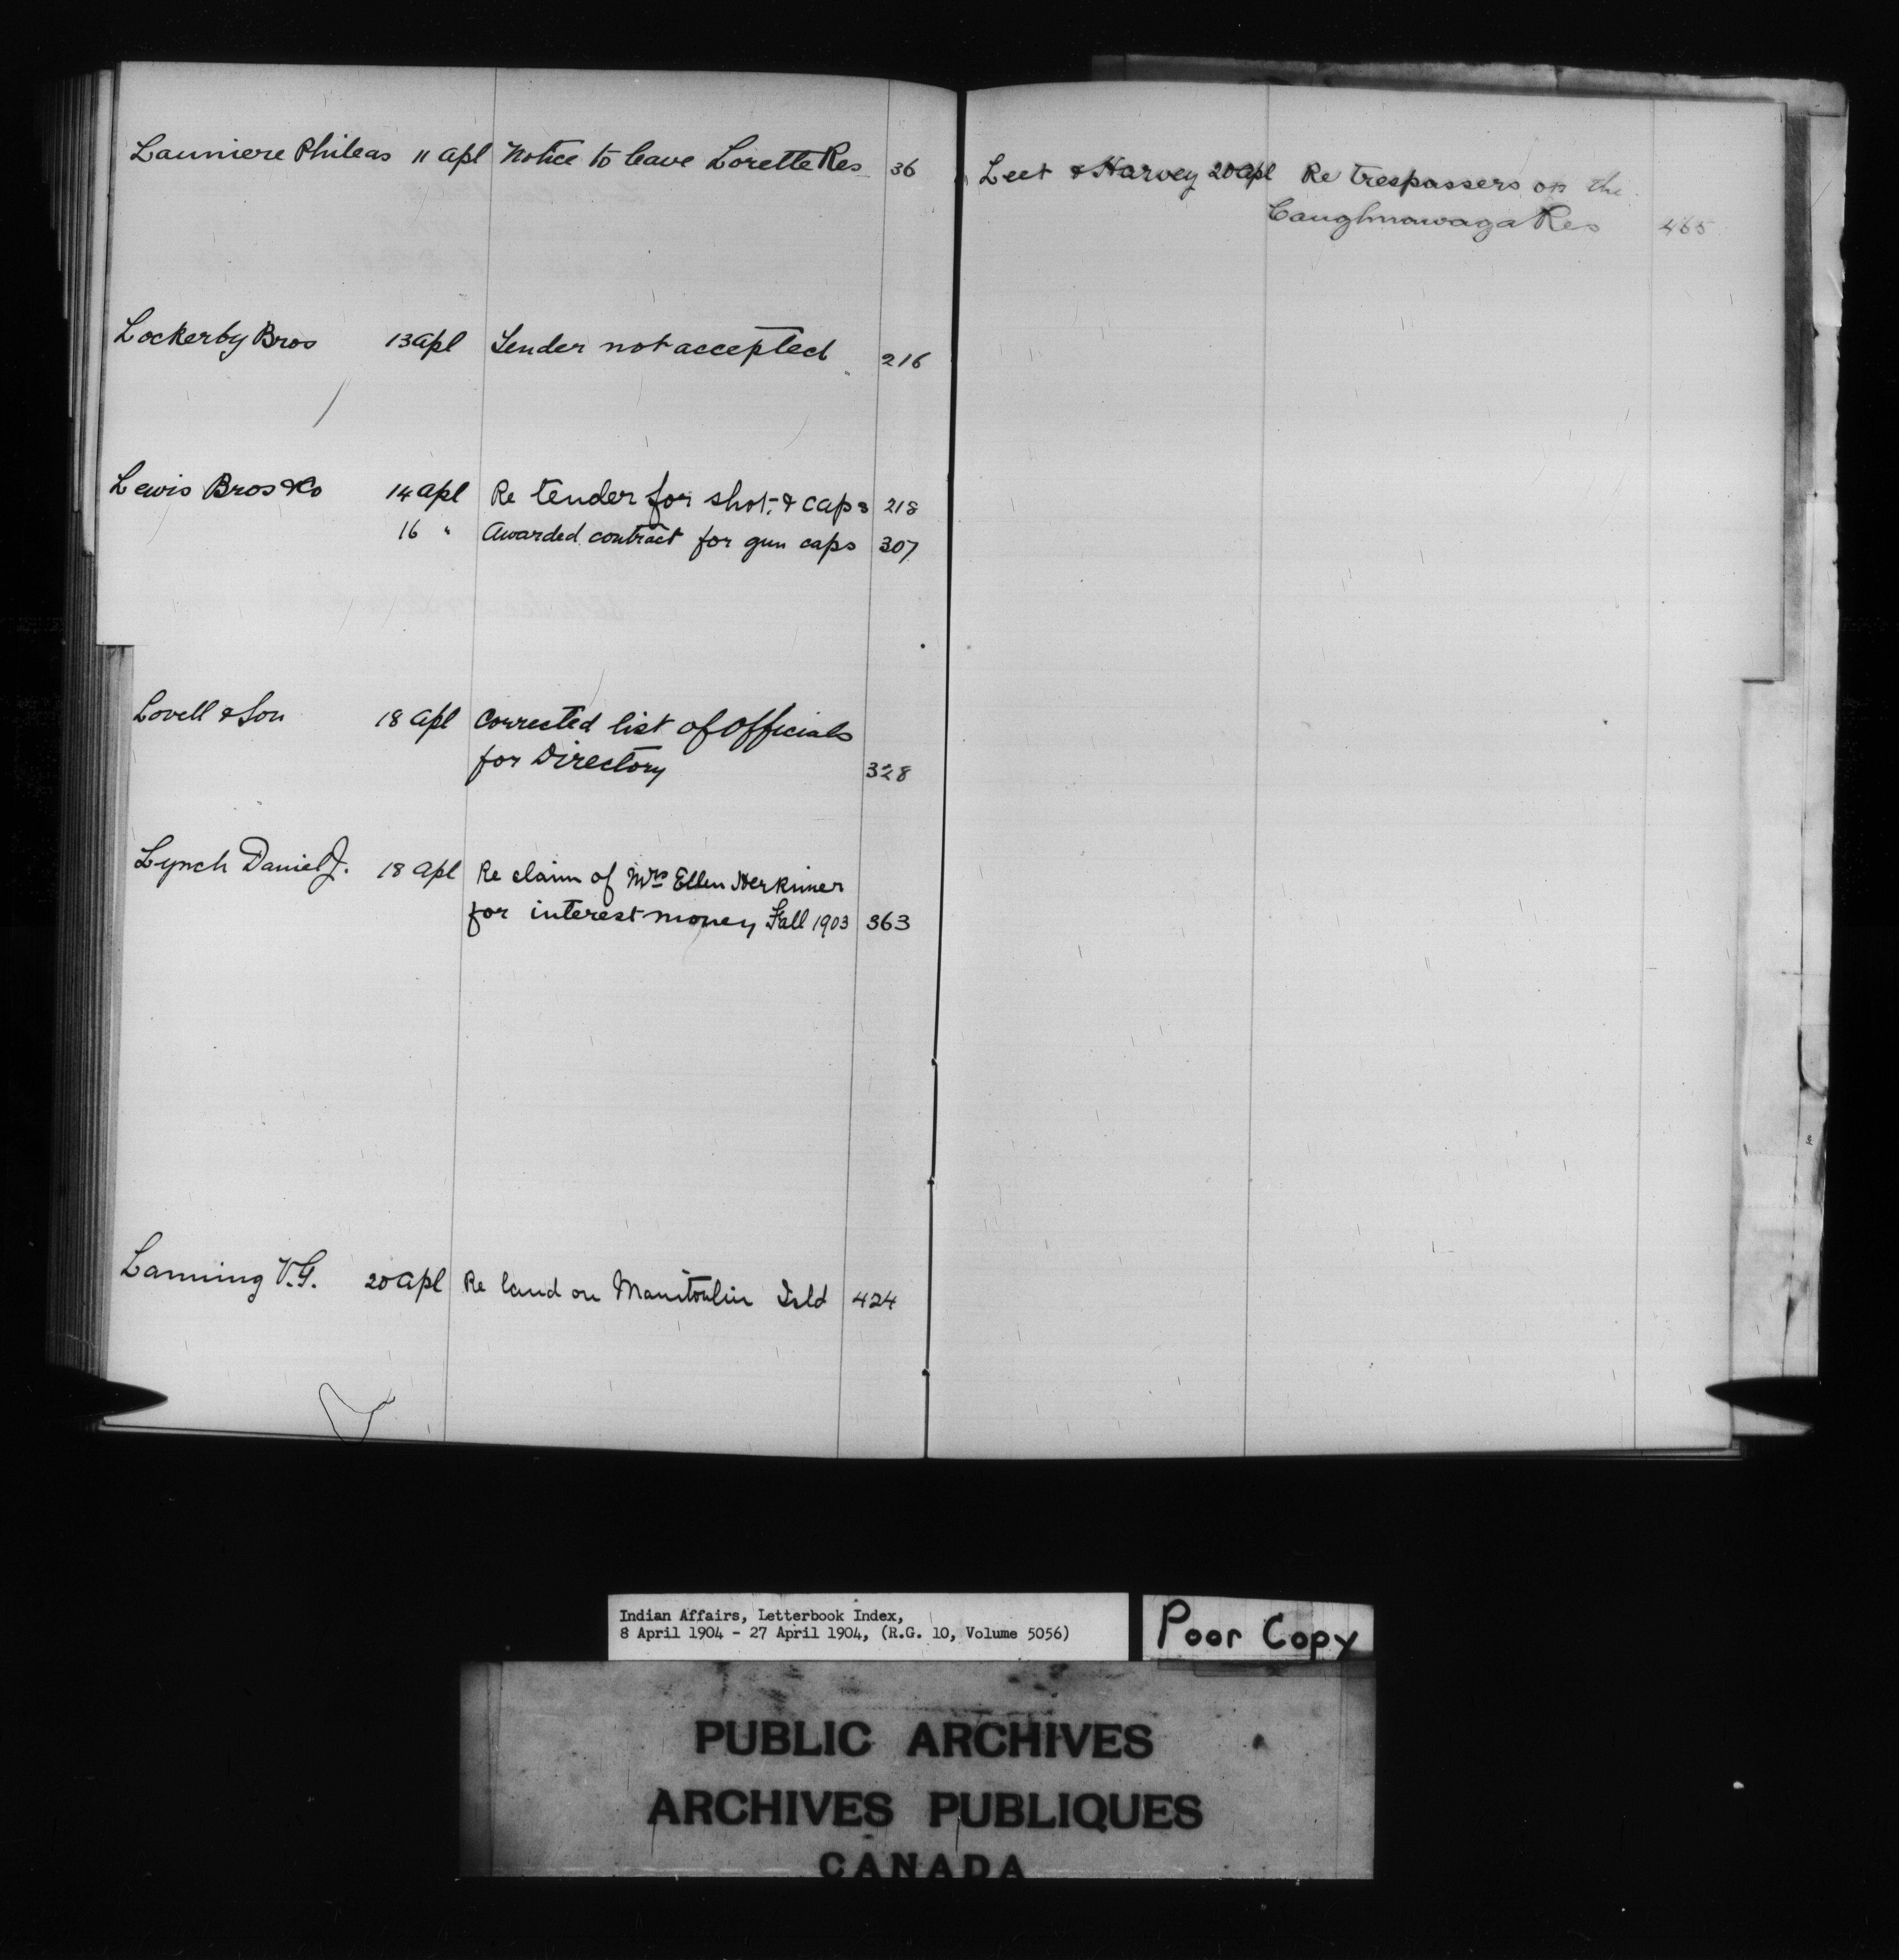 Launiere Phileas 11 Apl Notice to leave Lorette Res 36
Lockerby Bros 13 Apl Tender not accepted 216
Lewis Bros & Co 14 Apl Re tender for shot & caps 218
16 " Awarded contract for gun caps 307
Lovell & Son 18 Apl Corrected list of Officials
for Directory 328
Lynch Daniel J. 18 Apl Re claim of Mrs Ellen Herkimer
for interest money Fall 1903 363
Lanning V.G. 20 Apl Re land on Manitoulin Isld 424
Leet & Harvey 20 Apl Re trespassers on the
Caughnawaga Res 465
Indian Affairs, Letterbook Index,
8 April 1904 - 27 April 1904, (R.G. 10, Volume 5056)
Poor Copy
PUBLIC ARCHIVES
ARCHIVES PUBLIQUES
CANADA